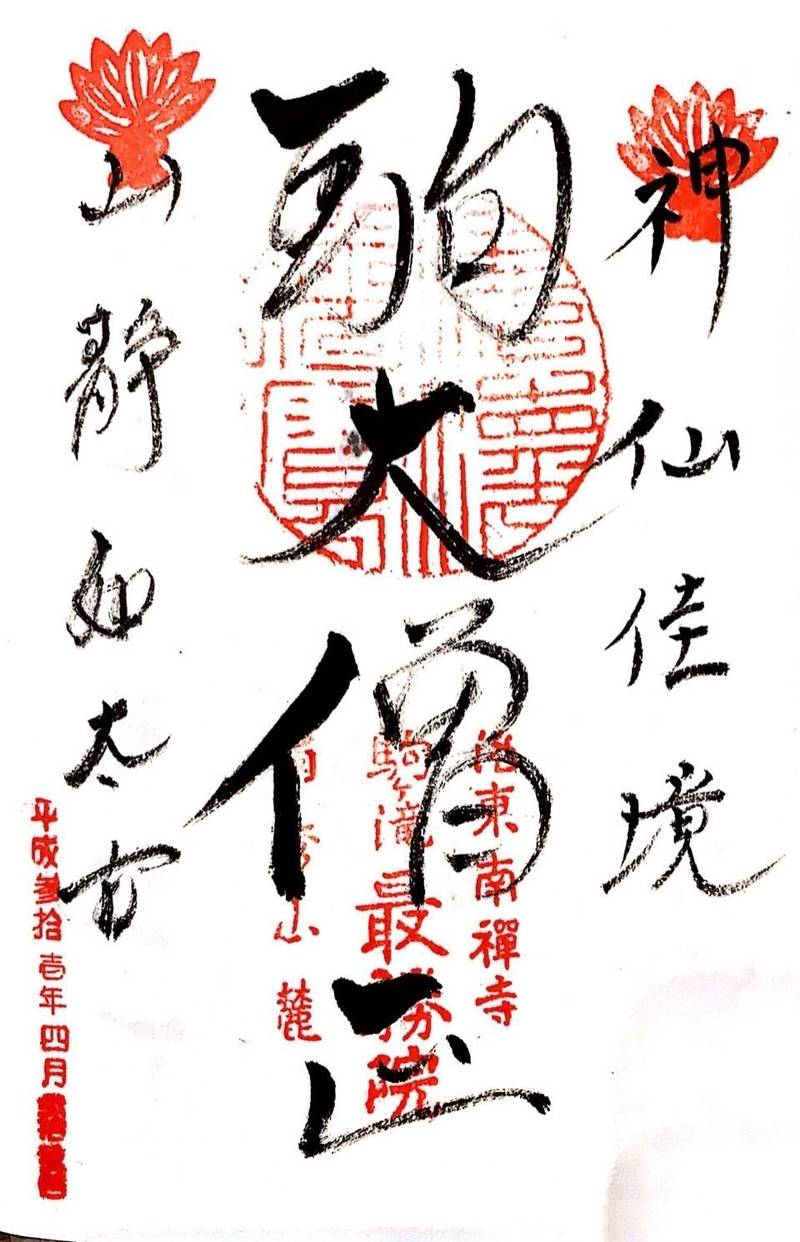 神仙佳境
駒大僧正
山静如太古
洛東南禪寺
駒ヶ滝最勝院
山麓
平成参拾壱年四月